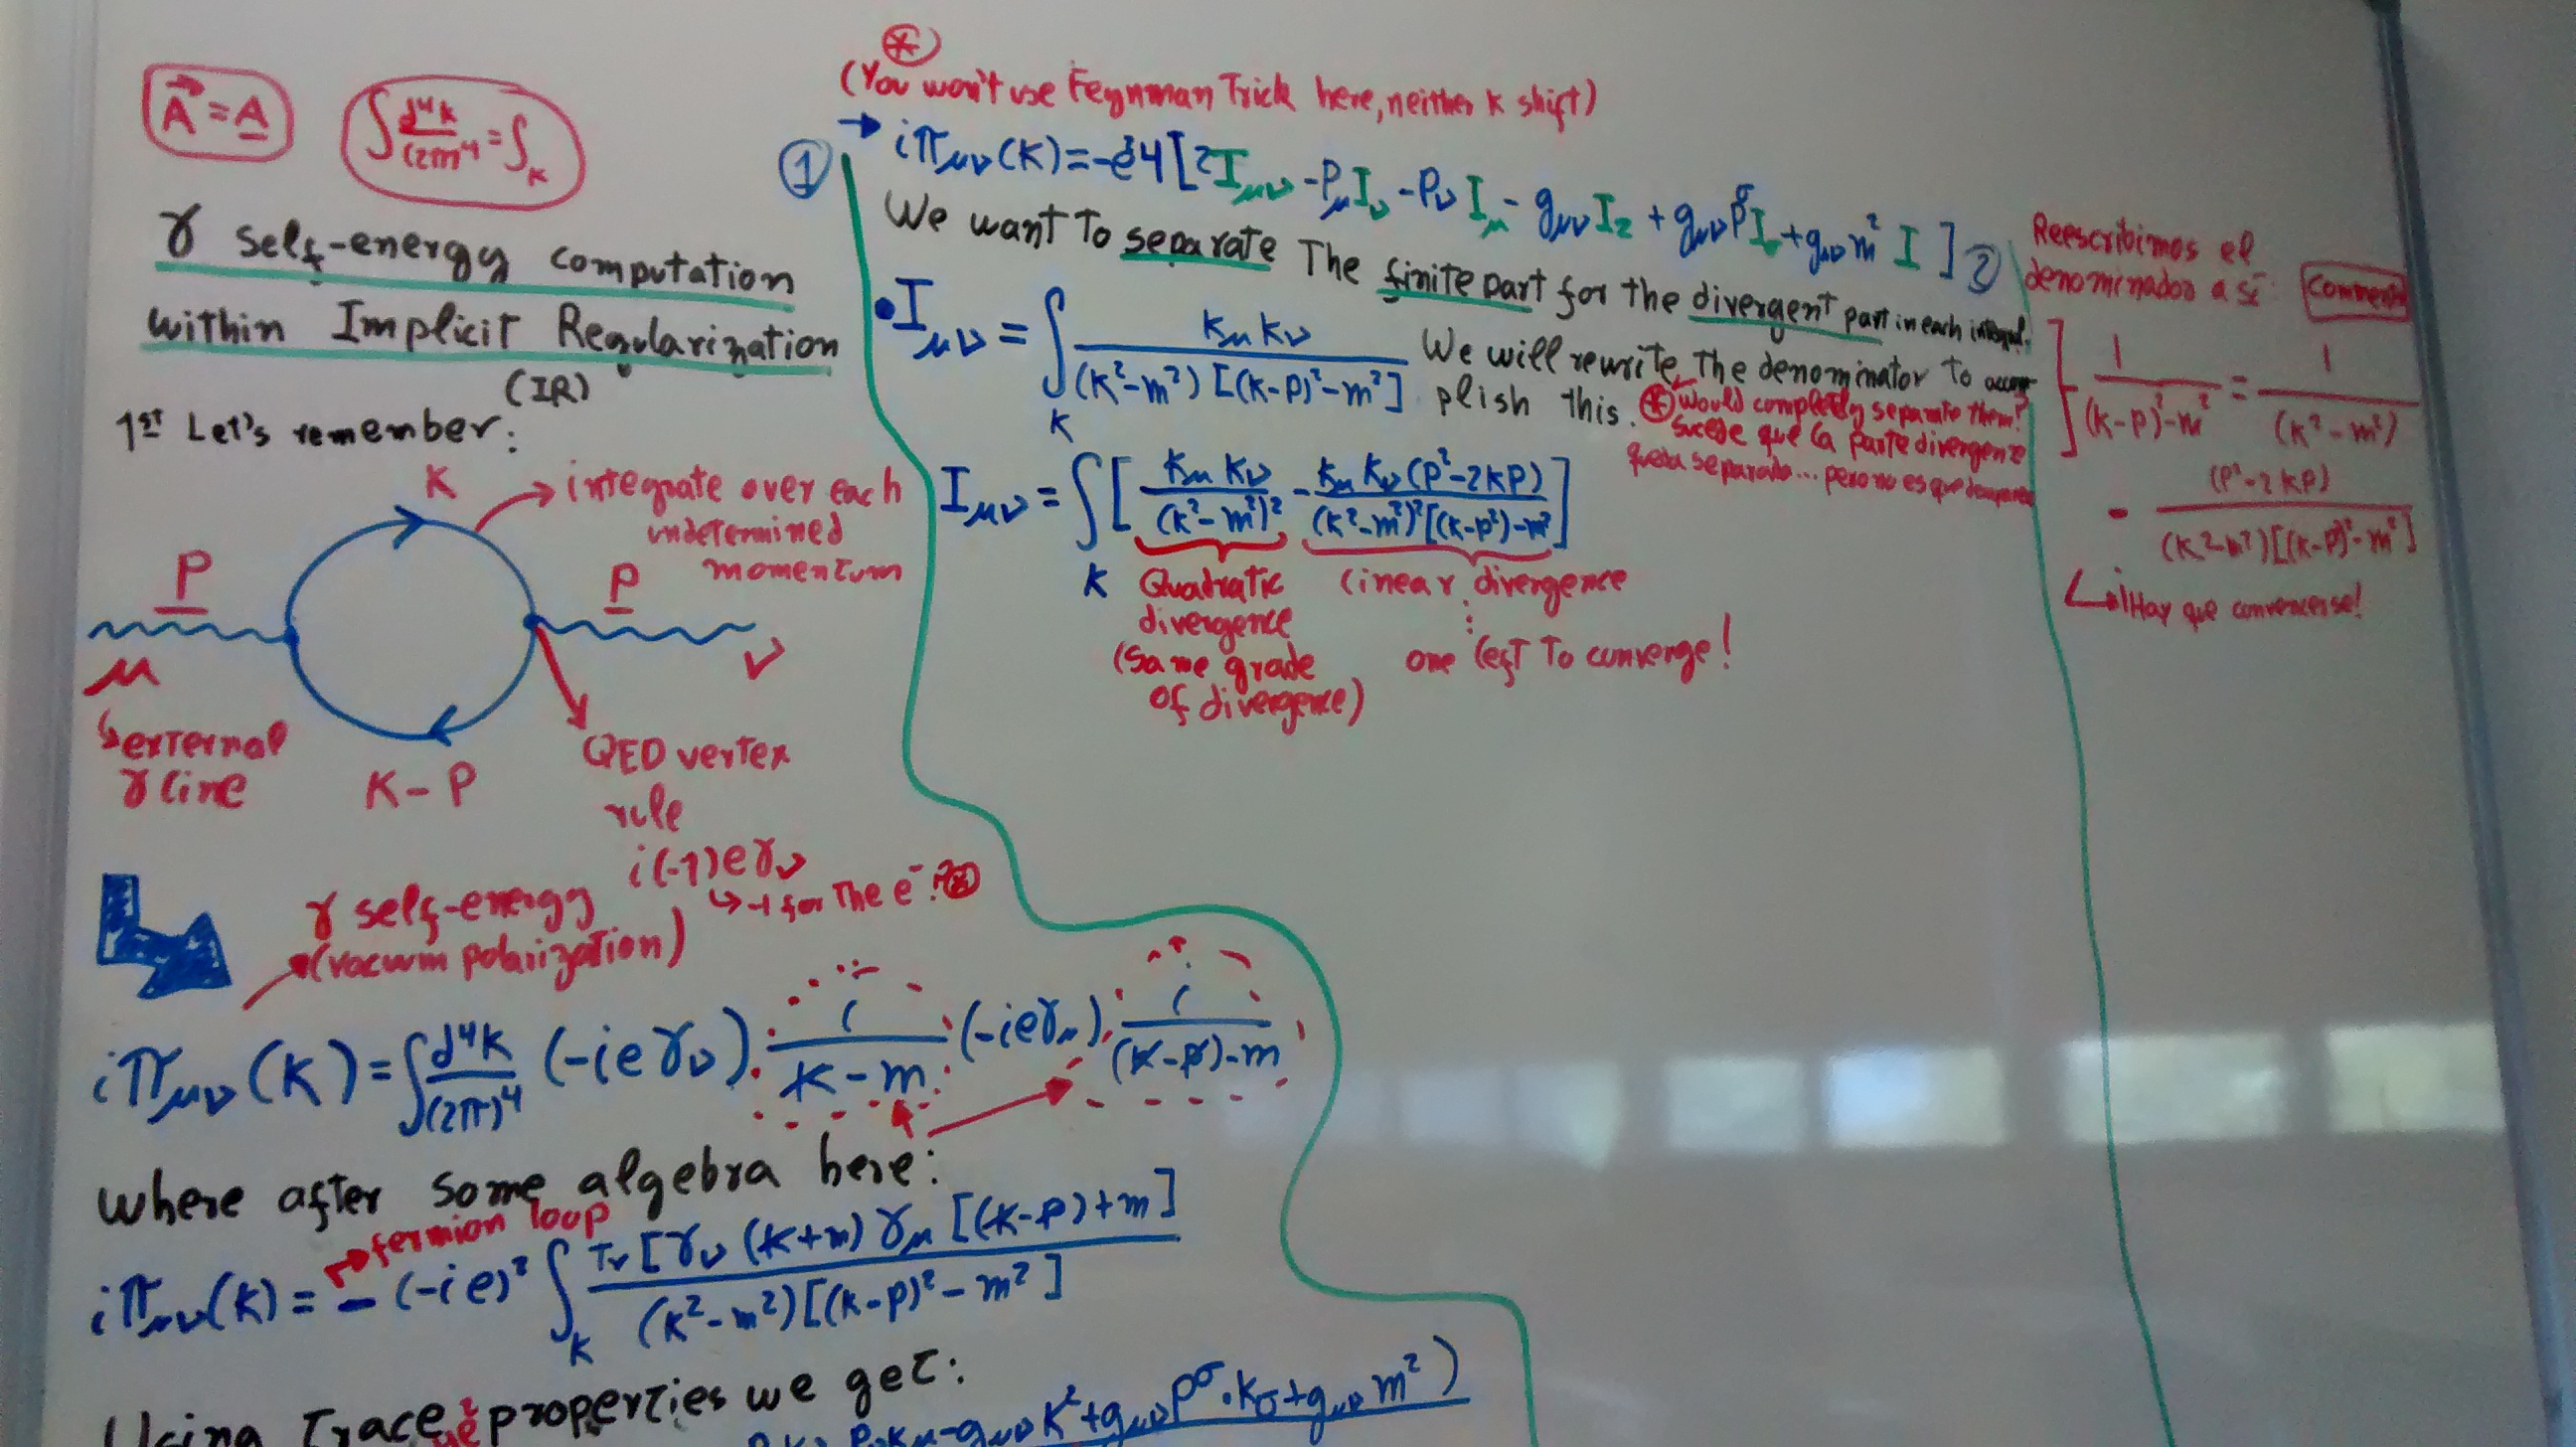 A⃗ = A̲
∫ d⁴k/(2π)⁴ = ∫_K
γ self-energy computation
within Implicit Regularization
(IR)
1st Let's remember:
K
integrate over each
undetermined
momentum
P
P
μ
ν
external
γ line
K-P
QED vertex
rule
i(-1)eγ_ν
-1 for The e⁻.?⊛
γ self-energy
(vacuum polarization)
iπ_μν(K) = ∫ d⁴K/(2π)⁴ (-ieγ_ν) i/(K̸-m) (-ieγ_μ) i/((K̸-p̸)-m)
where after some algebra here:
fermion loop
iπ_μν(K) = -(-ie)² ∫_K Tr[γ_ν(K̸+m)γ_μ[(K̸-p̸)+m]/(K²-m²)[(K-p)²-m²]
Using Trace properties we get:
K_μ-g_μν K²+g_μν P^σ·K_σ+g_μν m²)
⊛
(You won't use Feynman Trick here, neither K shift)
①
→ iπ_μν(K)=-e²4[2I_μν -P_μI_ν -P_ν I_μ - g_μν I_2 + g_μν P^σ I_σ +g_μν m² I] ②
We want To separate The finite part for the divergent part in each integral.
• I_μν = ∫_K K_μK_ν/(K²-m²)[(K-P)²-m²]
We will rewrite The denominator To accom
plish this.
⊛ would completly separate them?
sucede que la parte divergente
queda separada... pero no es que
I_μν = ∫_K [K_μK_ν/(K²-m²)² - K_μK_ν(P²-2KP)/(K²-m²)²[(K-P²)-m²]]
Quadratic
divergence
(Same grade
of divergence)
linear divergence
⋮
one left To converge!
Reescribimos el
denominador a sí:
Comment
1/((K-P)²-m²) = 1/(K²-m²)
- (P²-2KP)/(K²-m²)[(K-P)²-m²]
¡Hay que convencerse!